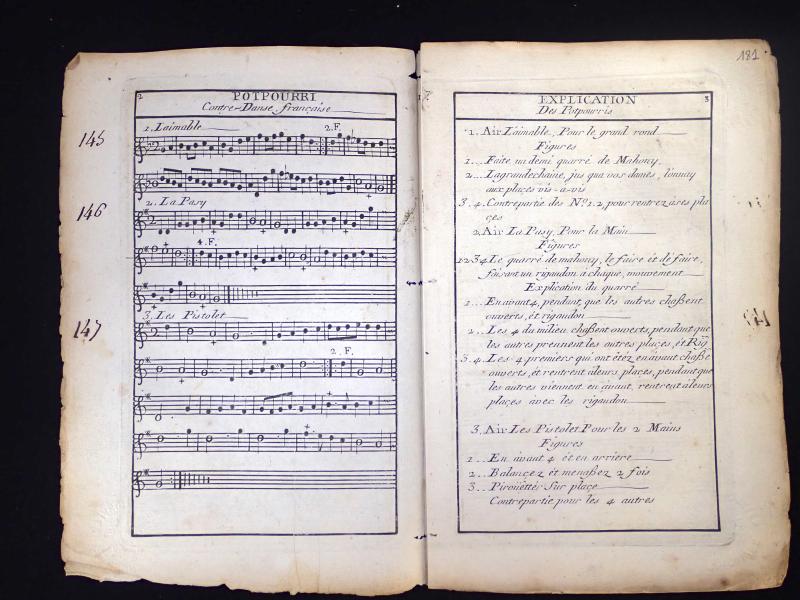 2
POTPOURRI
Contre-Danse française
145
1. Laimable
2. F.
146
2. La Pasy
4. F.
147
3. Les Pistolet
2. F.
181
3
EXPLICATION
Des Potpourris
1. Air L'aimable, Pour le grand rond
Figures
1.. Faite un demi quarré de Mahony,
2.. Lagrandechaine, jus qua vos dames,
aux places vis-a-vis
3.4. Contrepartie des Nº. 1.2, pour rentrez àses pla
çes
2. Air La Pasy, Pour la Main
Figures
1234. Le quarré de mahony, le faire et dé faire,
faisant un rigaudon à chaque, mouvement
Explication du quarré
1.. En avant 4, pendant, que les autres chaßent
ouverts, et rigaudon
2.. Les 4 du milieu chaßent ouverts, pendant que
les autres prennent les autres plaçes, ét Rig
3.4. Les 4 premiers qui ont étéz en avant chaße
ouverts, et rentrent àleurs places, pendant que
les autres viennent en avant, rentrent àleurs
plaçes avec les rigaudon
3. Air Les Pistolet Pour les 2 Mains
Figures
1.. En avant 4 ét en arriere
2.. Balançez ét menaßez 2 fois
3.. Piroüettés Sur plaçe
Contrepartie pour les 4 autres